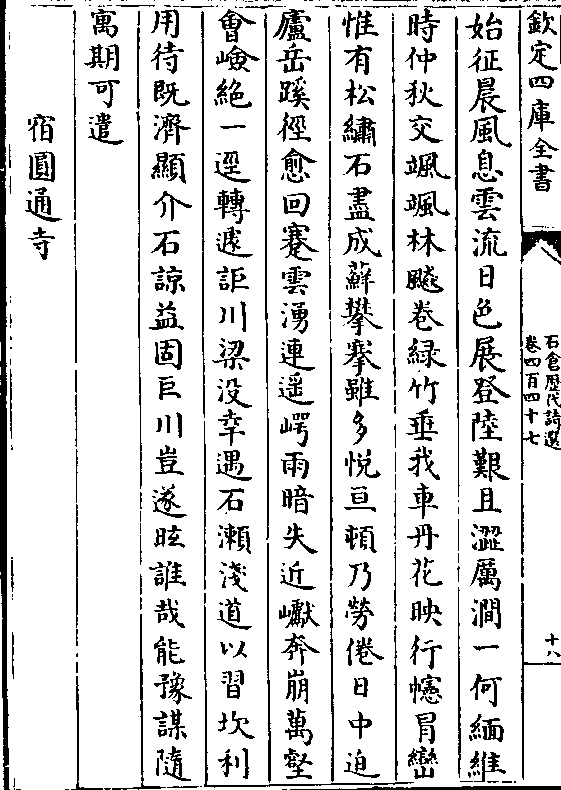 欽定四庫全書
石倉歴代詩選
卷四百四十七
十八
始征晨風息雲流日色展登陸艱且澀厲澗一何緬維
時仲秋交颯颯林飈卷緑竹垂我車丹花映行幰冐巒
惟有松繡石盡成蘚攀拏雖多悦亘頓乃勞倦日中迫
廬岳蹊徑愈回蹇雲湧連遥崿雨暗失近巘奔崩萬壑
會嶮絶一逕轉遽詎川梁没幸遇石瀬淺道以習坎利
用待既濟顯介石諒益固巨川豈遂眩誰哉能豫謀隨
寓期可遣
宿圓通寺